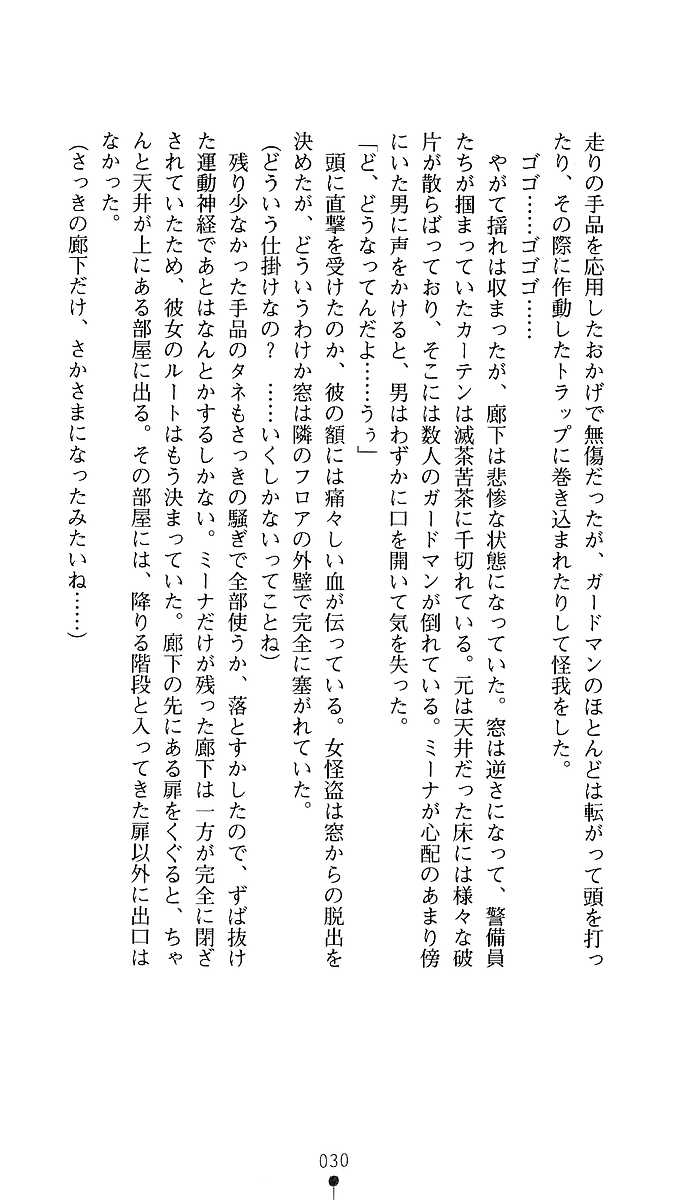 走りの手品を応用したおかげで無傷だったが、ガードマンのほとんどは転がって頭を打っ
たり、その際に作動したトラップに巻き込まれたりして怪我をした。
　ゴゴ……ゴゴゴ……
　やがて揺れは収まったが、廊下は悲惨な状態になっていた。窓は逆さになって、警備員
たちが掴まっていたカーテンは滅茶苦茶に千切れている。元は天井だった床には様々な破
片が散らばっており、そこには数人のガードマンが倒れている。ミーナが心配のあまり傍
にいた男に声をかけると、男はわずかに口を開いて気を失った。
「ど、どうなってんだよ……うぅ」
　頭に直撃を受けたのか、彼の額には痛々しい血が伝っている。女怪盗は窓からの脱出を
決めたが、どういうわけか窓は隣のフロアの外壁で完全に塞がれていた。
（どういう仕掛けなの？　……いくしかないってことね）
　残り少なかった手品のタネもさっきの騒ぎで全部使うか、落とすかしたので、ずば抜け
た運動神経であとはなんとかするしかない。ミーナだけが残った廊下は一方が完全に閉ざ
されていたため、彼女のルートはもう決まっていた。廊下の先にある扉をくぐると、ちゃ
んと天井が上にある部屋に出る。その部屋には、降りる階段と入ってきた扉以外に出口は
なかった。
（さっきの廊下だけ、さかさまになったみたいね……）
030